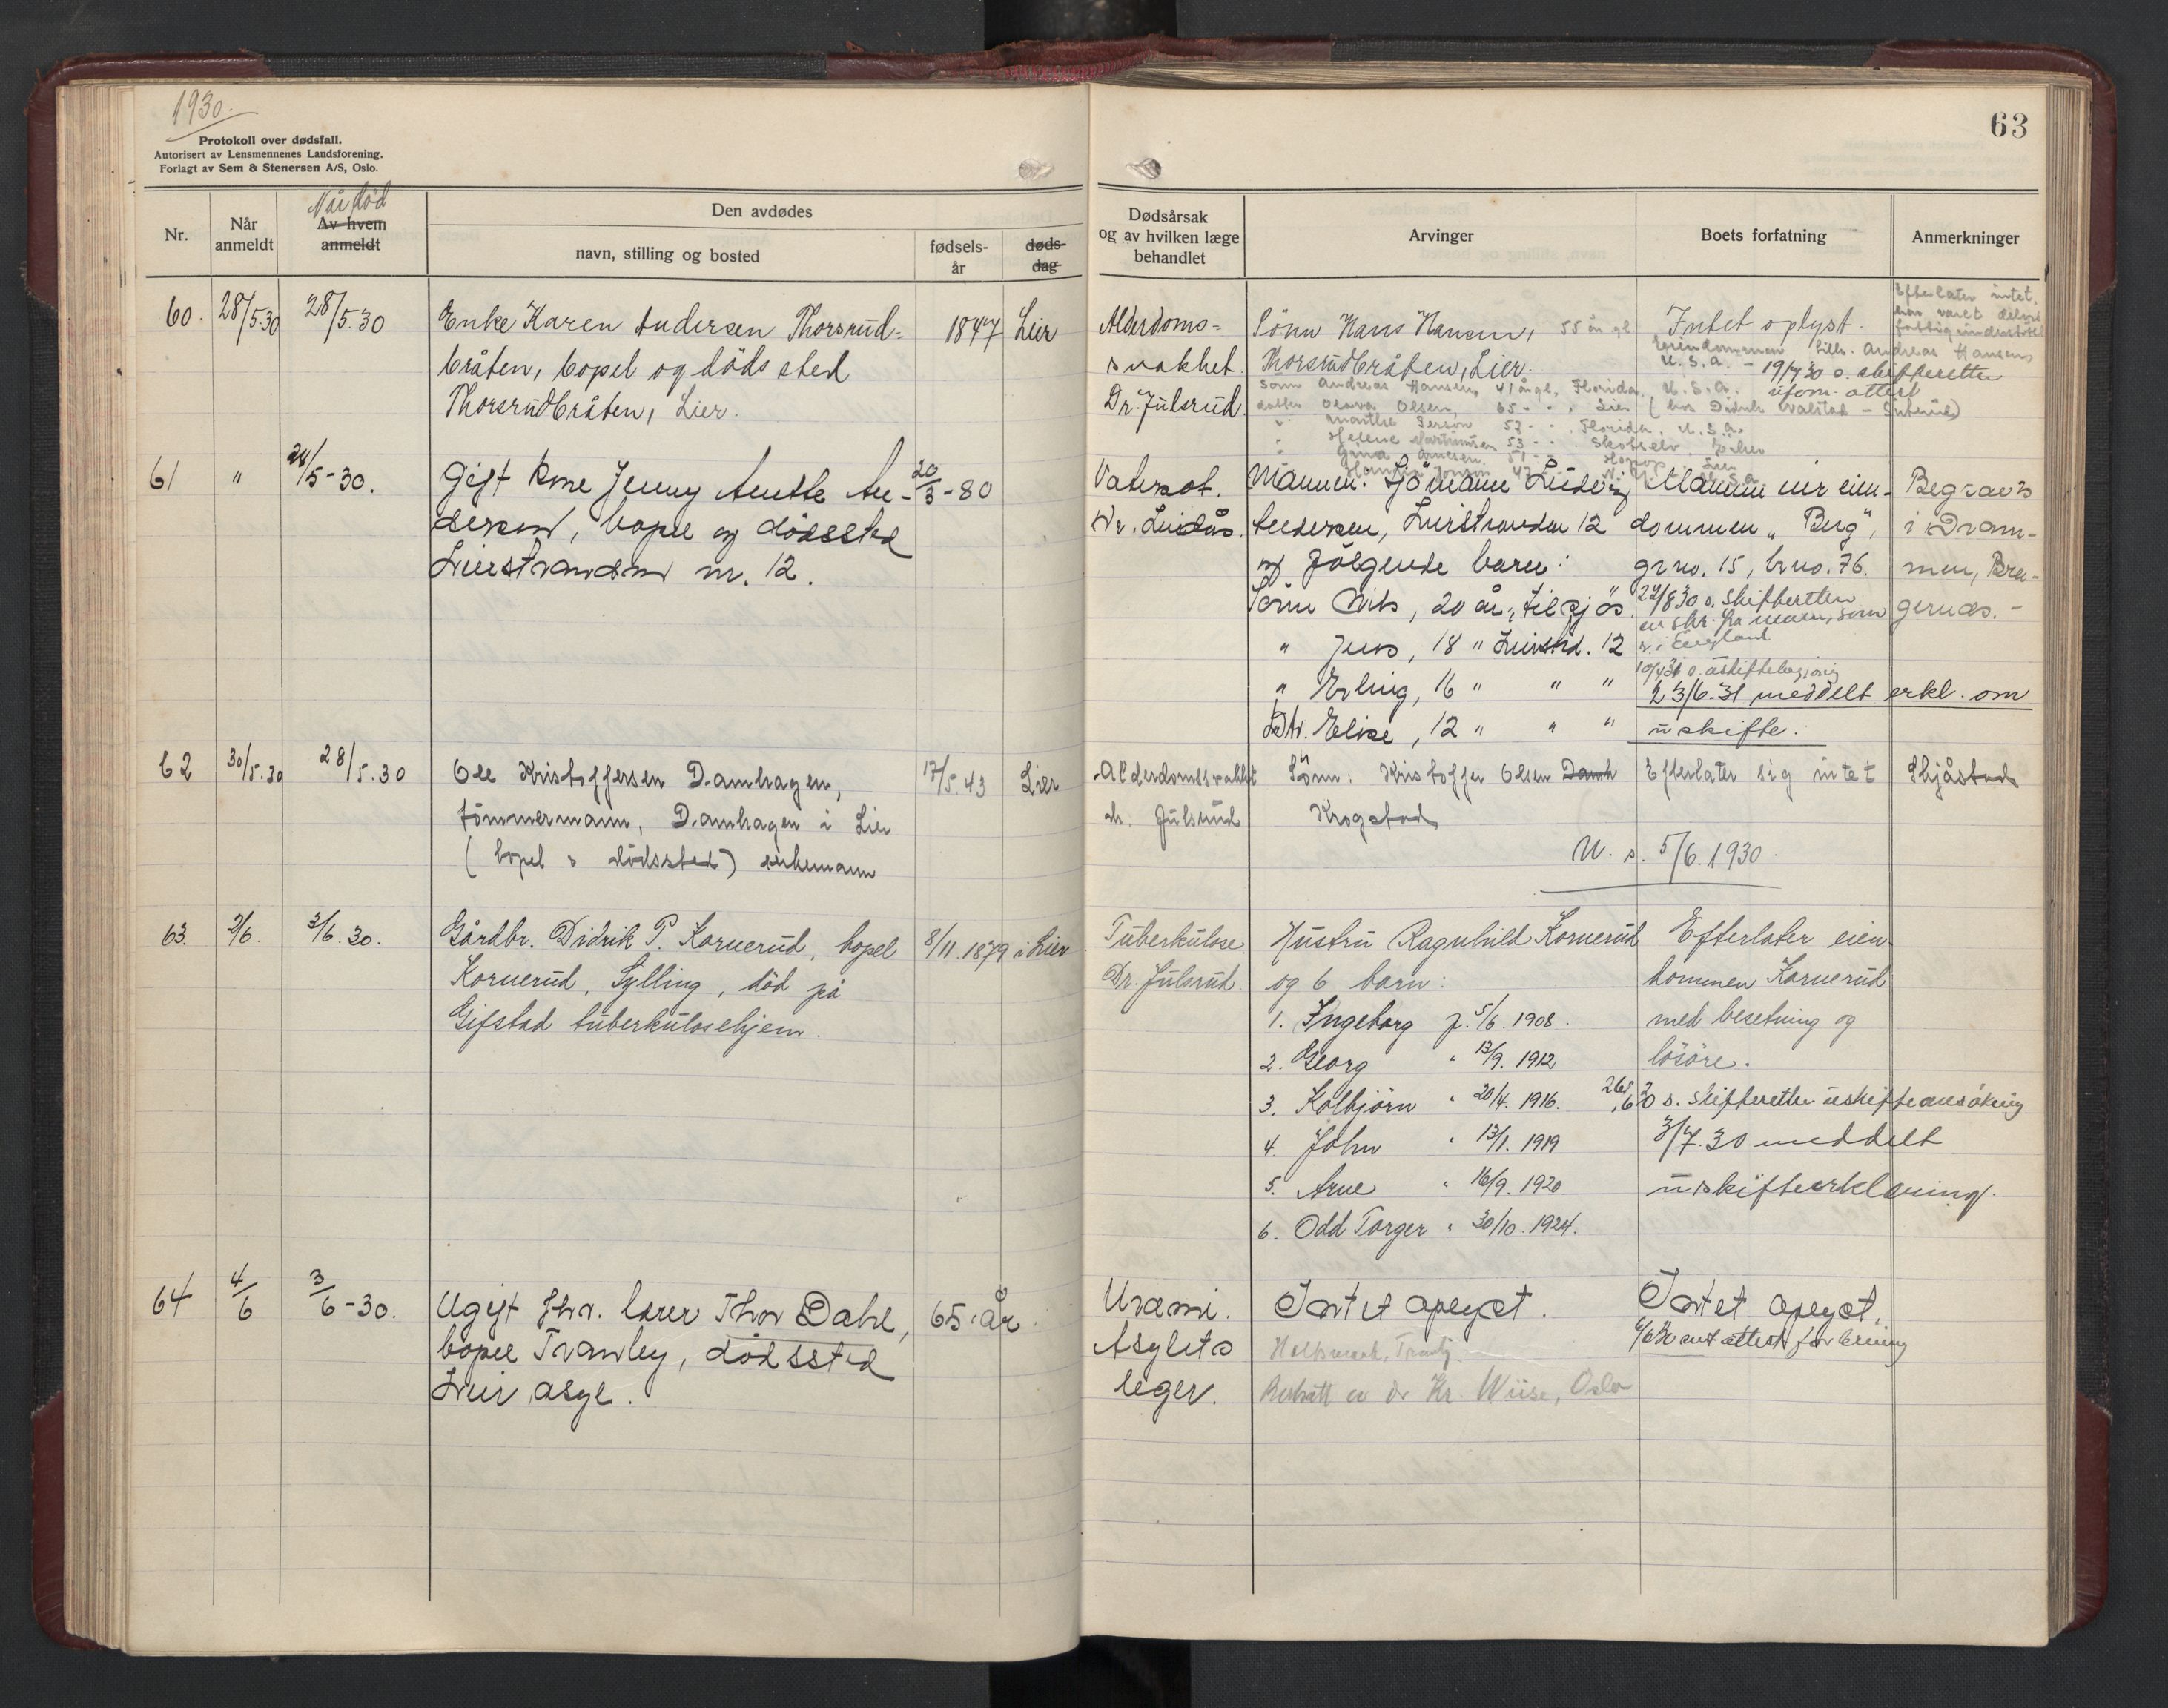 1930.
Protokoll over dødsfall.
Autorisert av Lensmennenes Landsforening.
Forlagt av Sem & Stenersen A/S, Oslo.
63
Nr.
Når anmeldt
Når død
Av hvem anmeldt
Den avdødes
navn, stilling og bosted
fødsels-
år
døds-
dag
Dødsårsak
og av hvilken læge
behandlet
Arvinger
Boets forfatning
Anmerkninger
60. 28/5.30 28/5.30 Enke Karen Andersen Thorsrud- 1847 Lier
bråten, bopel og dödssted
Thorsrudbråten, Lier.
Alderdoms-
svakhet.
Dr. Julsrud.
Sönn Hans Hansen, 55 år gl
Thorsrudbråten, Lier.
Sönn Andreas Hansen, 41 år gl, Florida, U.S.A.
datter Olava Olsen, 65 - - , Lier (hos Didrik Valstad -
53 - - Florida, U.S.A.
Helene Martinsen 53 - - Skotselv, Eiker
Gina
Intet oplyst.
Eiendommen tilh. Andreas Hansen,
U.S.A. - 19/7 30 s. skifteretten
uform. attest
Efterlater intet,
har været delvis
fattigunderstøttet
61 " 28/5-30. Gift kone Jenny Anette An- 20/3-80
dersen, bopel og dödssted
Lierstranden nr. 12.
Vatersot.
Dr. Lidås.
Mannen: Sjömann Ludvig
Andersen, Lierstranden 12
og fölgende barn:
Sönn Nils, 20 år, tilsjös.
" Jens, 18 " Lierstrd. 12
" Erling, 16 " " "
Dtr. Elise, 12 " " "
Mannen eier eien-
dommen "Berg",
grno. 15, brno. 76.
22/8 30 s. skifteretten
en skr. fra mannen, som
er i England
10/4 31 s. uskiftebegjæring
23/6-31 meddelt erkl. om
uskifte.
Begraves
i Dram-
men, Bra-
gernæs. -
62 30/5.30 28/5.30 Ole Kristoffersen Damhagen, 17/5.43 Lier
tömmermann, Damhagen i Lier
(bopel o dödssted) enkemann
Alderdomssvakhet
dr. Julsrud
Sönn: Kristoffer Olsen Damh
Krogstad
Efterlater sig intet
Skjåstad
U. s. 5/6.1930.
63. 2/6. 2/6.30. Gårdbr. Didrik P. Kornerud, bopel 8/11.1879 i Lier
Kornerud, Sylling, död på
Gifstad tuberkulosehjem.
Tuberkulose
Dr. Julsrud.
Hustru Ragnhild Kornerud
og 6 barn:
1. Ingeborg f. 5/6. 1908.
2. Georg " 13/9. 1912
3. Kolbjörn " 20/4. 1916.
4. John " 13/1. 1919
5. Arne " 16/9. 1920
6. Odd Torger " 30/10. 1924.
Efterlater eien-
dommen Kornerud
med besetning og
lösöre.
26/6 30 s. skifteretten uskifteansökning
3/7.30 meddelt
uskifteerklæring.
64 4/6 3/6-30. Ugift fhv. lærer Thor Dahl, 65 år.
bopel Tranby, dödssted
Lier asyl.
Uræmi.
Asylets
leger.
Intet oplyst.
Tranby.
Bestyrer er Dr Kr. Wiise, Oslo
Intet oplyst.
4/6 30 utst attest for